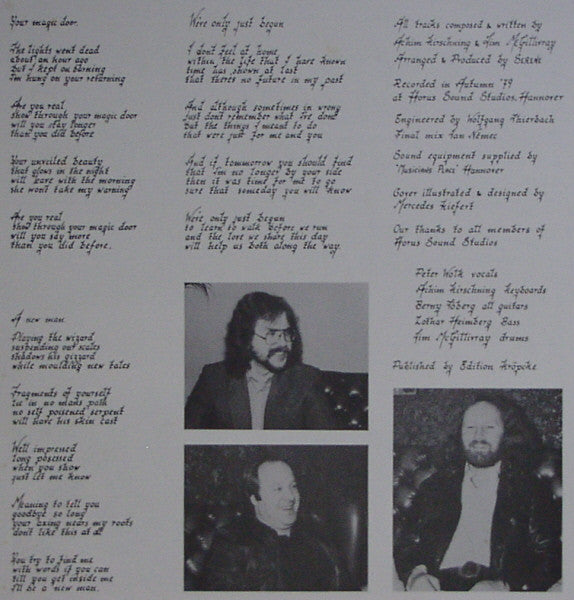 Your magic door.
The lights went dead
about an hour ago
but I kept on burning
I'm hung on your returning
Are you real
show through your magic door
will you stay longer
than you did before
Your unveiled beauty
that glows in the night
will leave with the morning
she won't take my warning
Are you real
show through your magic door
will you say more
than you did before.
A new man.
Playing the wizard
suspending out scales
shadows his gizzard
while moulding new tales
Fragments of yourself
lie in no mans path
no self poisened serpent
will have his skin last
Well impressed
long obsessed
when you show
just let me know
Meaning to tell you
goodbye so long
your axing nears my roots
don't like this at all
You try to find me
with words if you can
till you get inside me
I'll be a new man.
We're only just begun
I don't feel at home
within the life that I have known
time has shown at last
that theres no future in my past
And although sometimes in wrong
just don't remember what I've done
But the things I meant to do
that were just for me and you
And if tommorrow you should find
that I'm no longer by your side
then it was time for me to go
sure that someday you will know
We're only just begun
to learn to walk before we run
and the love we share this day
will help us both along the way.
All tracks composed & written by
Achim Kirschning & Jim McGillivray
Arranged & Produced by
Recorded in Autumn '79
at Horus Sound Studios, Hannover
Engineered by Wolfgang Thierbach
Final mix Jan Němec
Sound equipment supplied by
Hannover
Cover illustrated & designed by
Mercedes Kiefert
Our thanks to all members of
Horus Sound Studios
Peter Wolk vocals
Achim Kirschning keyboards
Berny all guitars
Lothar Heimberg Bass
Jim McGillivray drums
Published by Edition Kröpcke